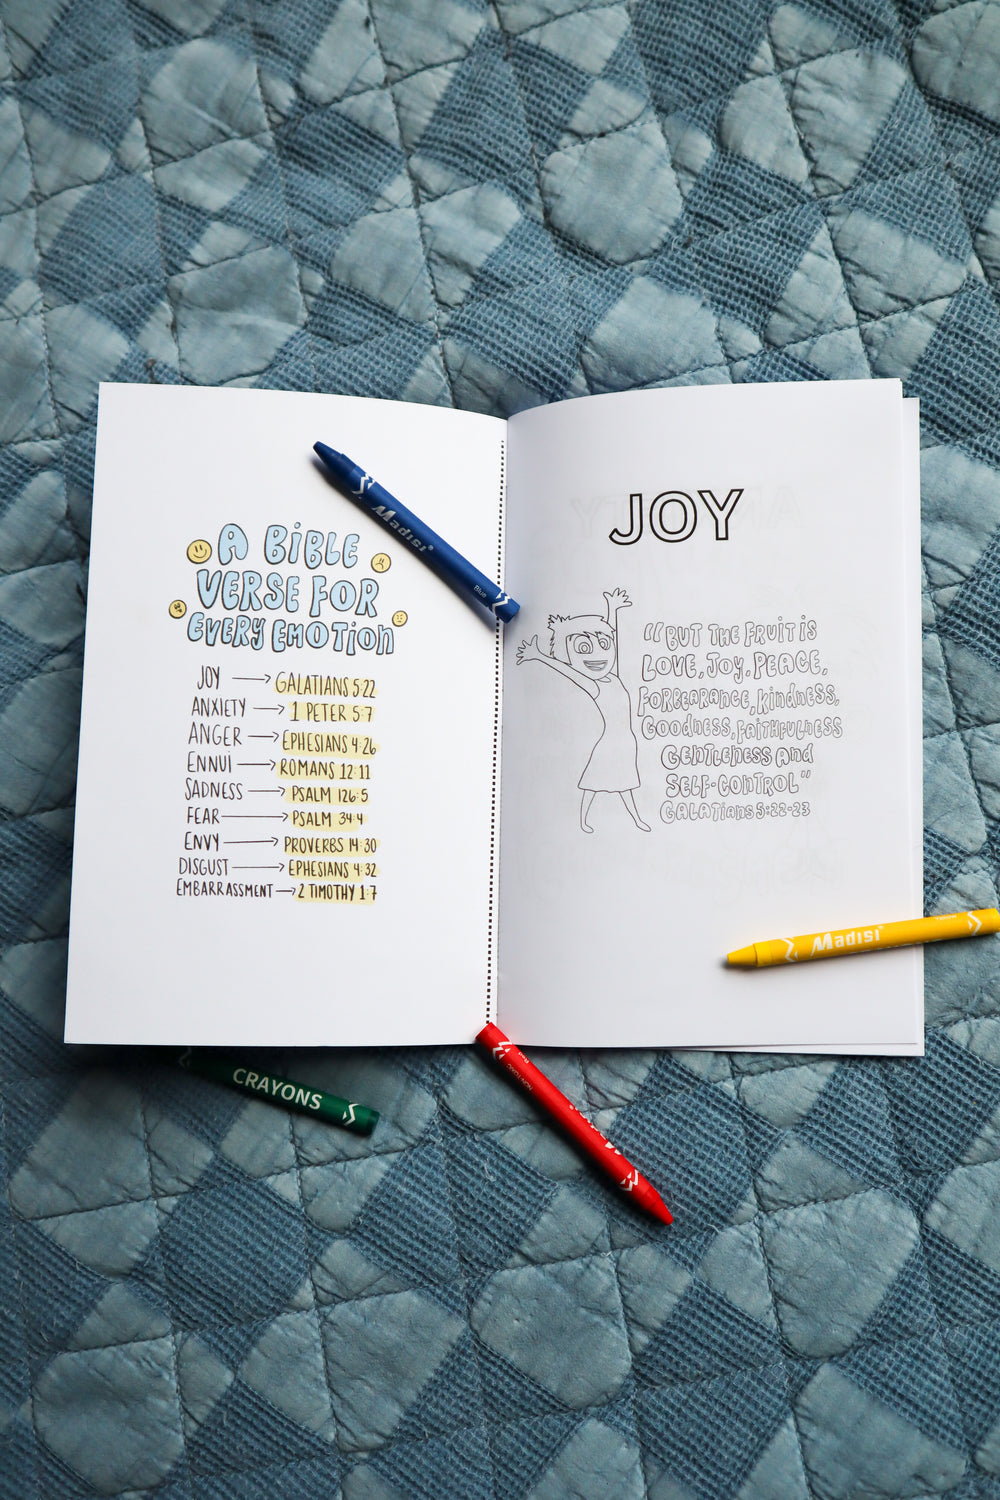 A BIBLE
VERSE FOR
EVERY EMOTION
JOY → GALATIANS 5:22
ANXIETY → 1 PETER 5:7
ANGER → EPHESIANS 4:26
ENNUI → ROMANS 12:11
SADNESS → PSALM 126:5
FEAR → PSALM 34:4
ENVY → PROVERBS 14:30
DISGUST → EPHESIANS 4:32
EMBARRASSMENT → 2 TIMOTHY 1:7
JOY
"BUT THE FRUIT IS
LOVE, JOY, PEACE,
FORBEARANCE, KINDNESS,
GOODNESS, FAITHFULNESS
GENTLENESS AND
SELF-CONTROL"
GALATIANS 5:22-23
Madisi®
Blue
Madisi®
Yellow
CRAYONS
Red
NON-TOXIC